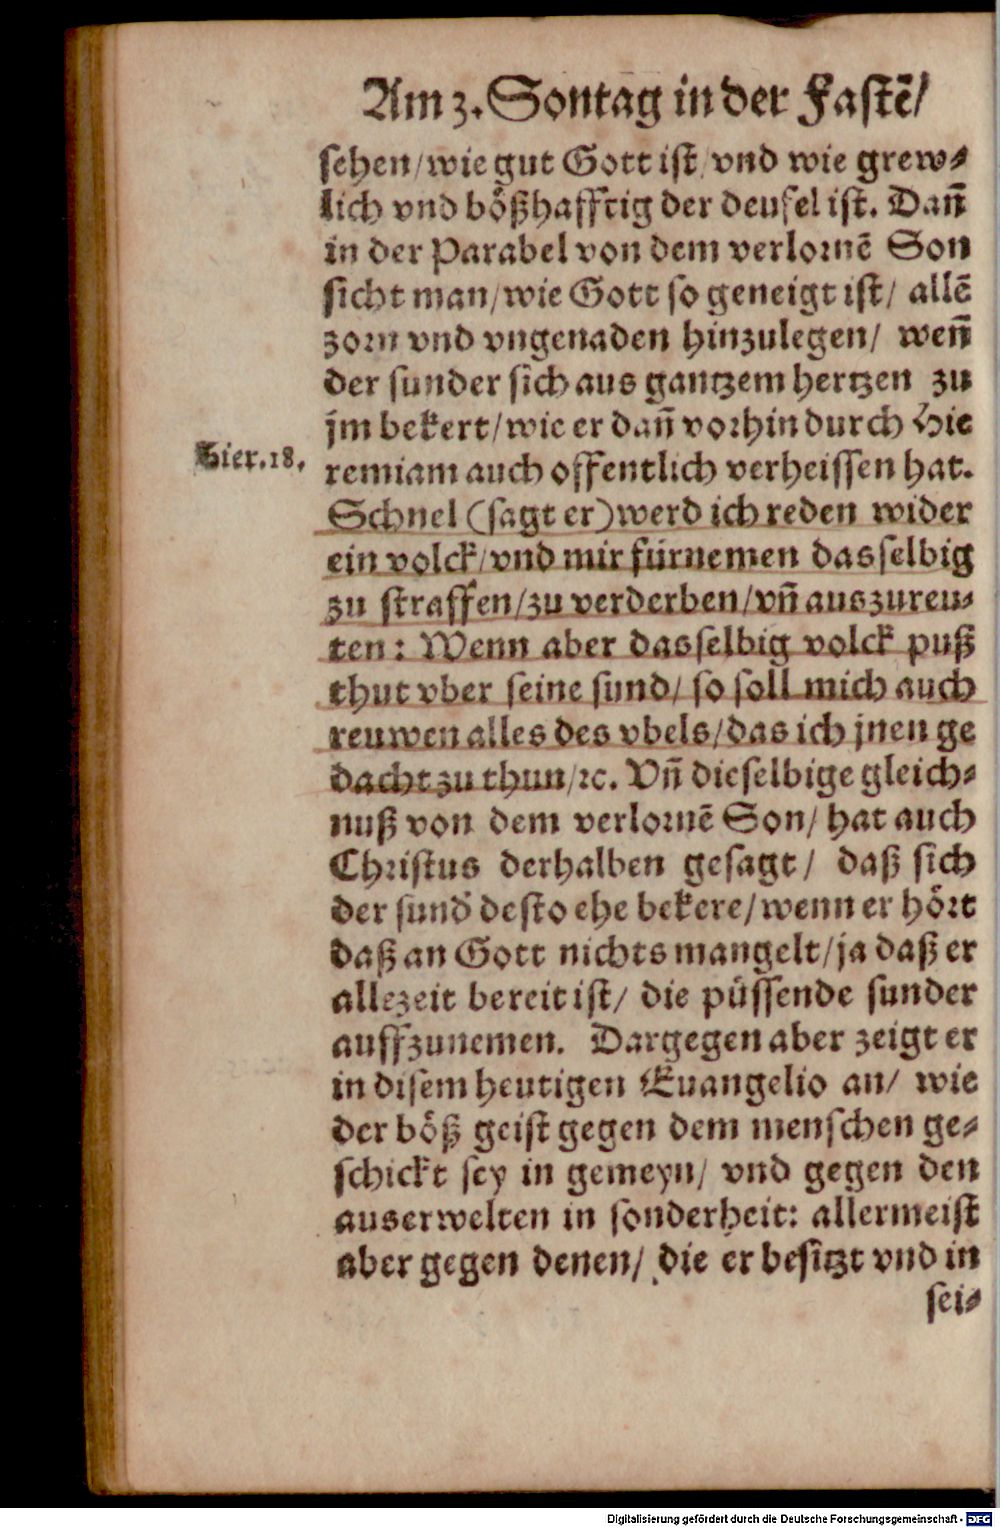 Am 3. Sontag in der Fastē/
sehen/wie gut Gott ist/vnd wie grew⸗
lich vnd bößhafftig der deufel ist. Dañ
in der Parabel von dem verlornē Son
sicht man/wie Gott so geneigt ist/ allē
zorn vnd vngenaden hinzulegen/ weñ
der sunder sich aus gantzem hertzen zu
jm bekert/wie er dañ vorhin durch Hie
Hier.18.
remiam auch offentlich verheissen hat.
Schnel (sagt er) werd ich reden wider
ein volck/vnd mir fürnemen dasselbig
zu straffen/zu verderben/vñ auszureu⸗
ten: Wenn aber dasselbig volck puß
thut vber seine sund/ so soll mich auch
reuwen alles des vbels/das ich jnen ge
dacht zu thun/ꝛc. Vñ dieselbige gleich⸗
nuß von dem verlornē Son/ hat auch
Christus derhalben gesagt/ daß sich
der sund̛ desto ehe bekere/wenn er hört
daß an Gott nichts mangelt/ja daß er
allezeit bereit ist/ die püssende sunder
auffzunemen. Dargegen aber zeigt er
in disem heutigen Euangelio an/ wie
der böß geist gegen dem menschen ge⸗
schickt sey in gemeyn/ vnd gegen den
auserwelten in sonderheit: allermeist
aber gegen denen/ die er besitzt vnd in
sei⸗
Digitalisierung gefördert durch die Deutsche Forschungsgemeinschaft - DFG